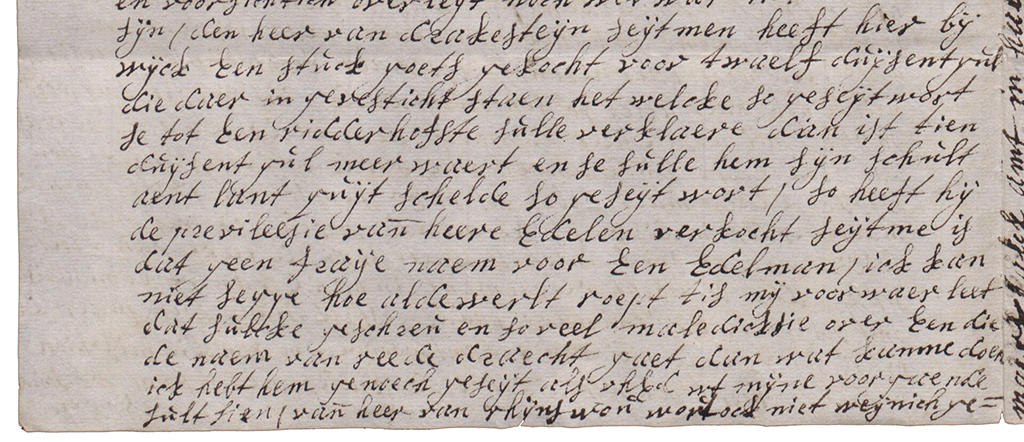 en voorsichtich overleyt noch
sijn / den heer van drakesteijn seijtmen heeft hier bij
wijck Een stuck goets gekocht voor twaelf duijsent gul
die daer in geresticht staen het welcke so geseijt wort
se tot Een ridderhofste sulle verklaere dan ist tien
duijsent gul meer waert en se sulle hem sijn schult
aent lant quijt schelde so geseijt wort / so heeft hij
de previleesie vañ heere Edelen verkocht seijtme is
dat geen fraije naem voor Een Edelman / ick kan
niet segge hoe aldewerlt roept tis mij voorwaer leet
dat sulcke geschreu en so veel maledicksie over Een die
de naem van reede draecht gaet dan wat kanme doen
ick hebt hem genoech geseijt als uhEd wt mijne voorgaende
sult sien / vañ heer van rhijnswou wort ock niet weijnich ge=